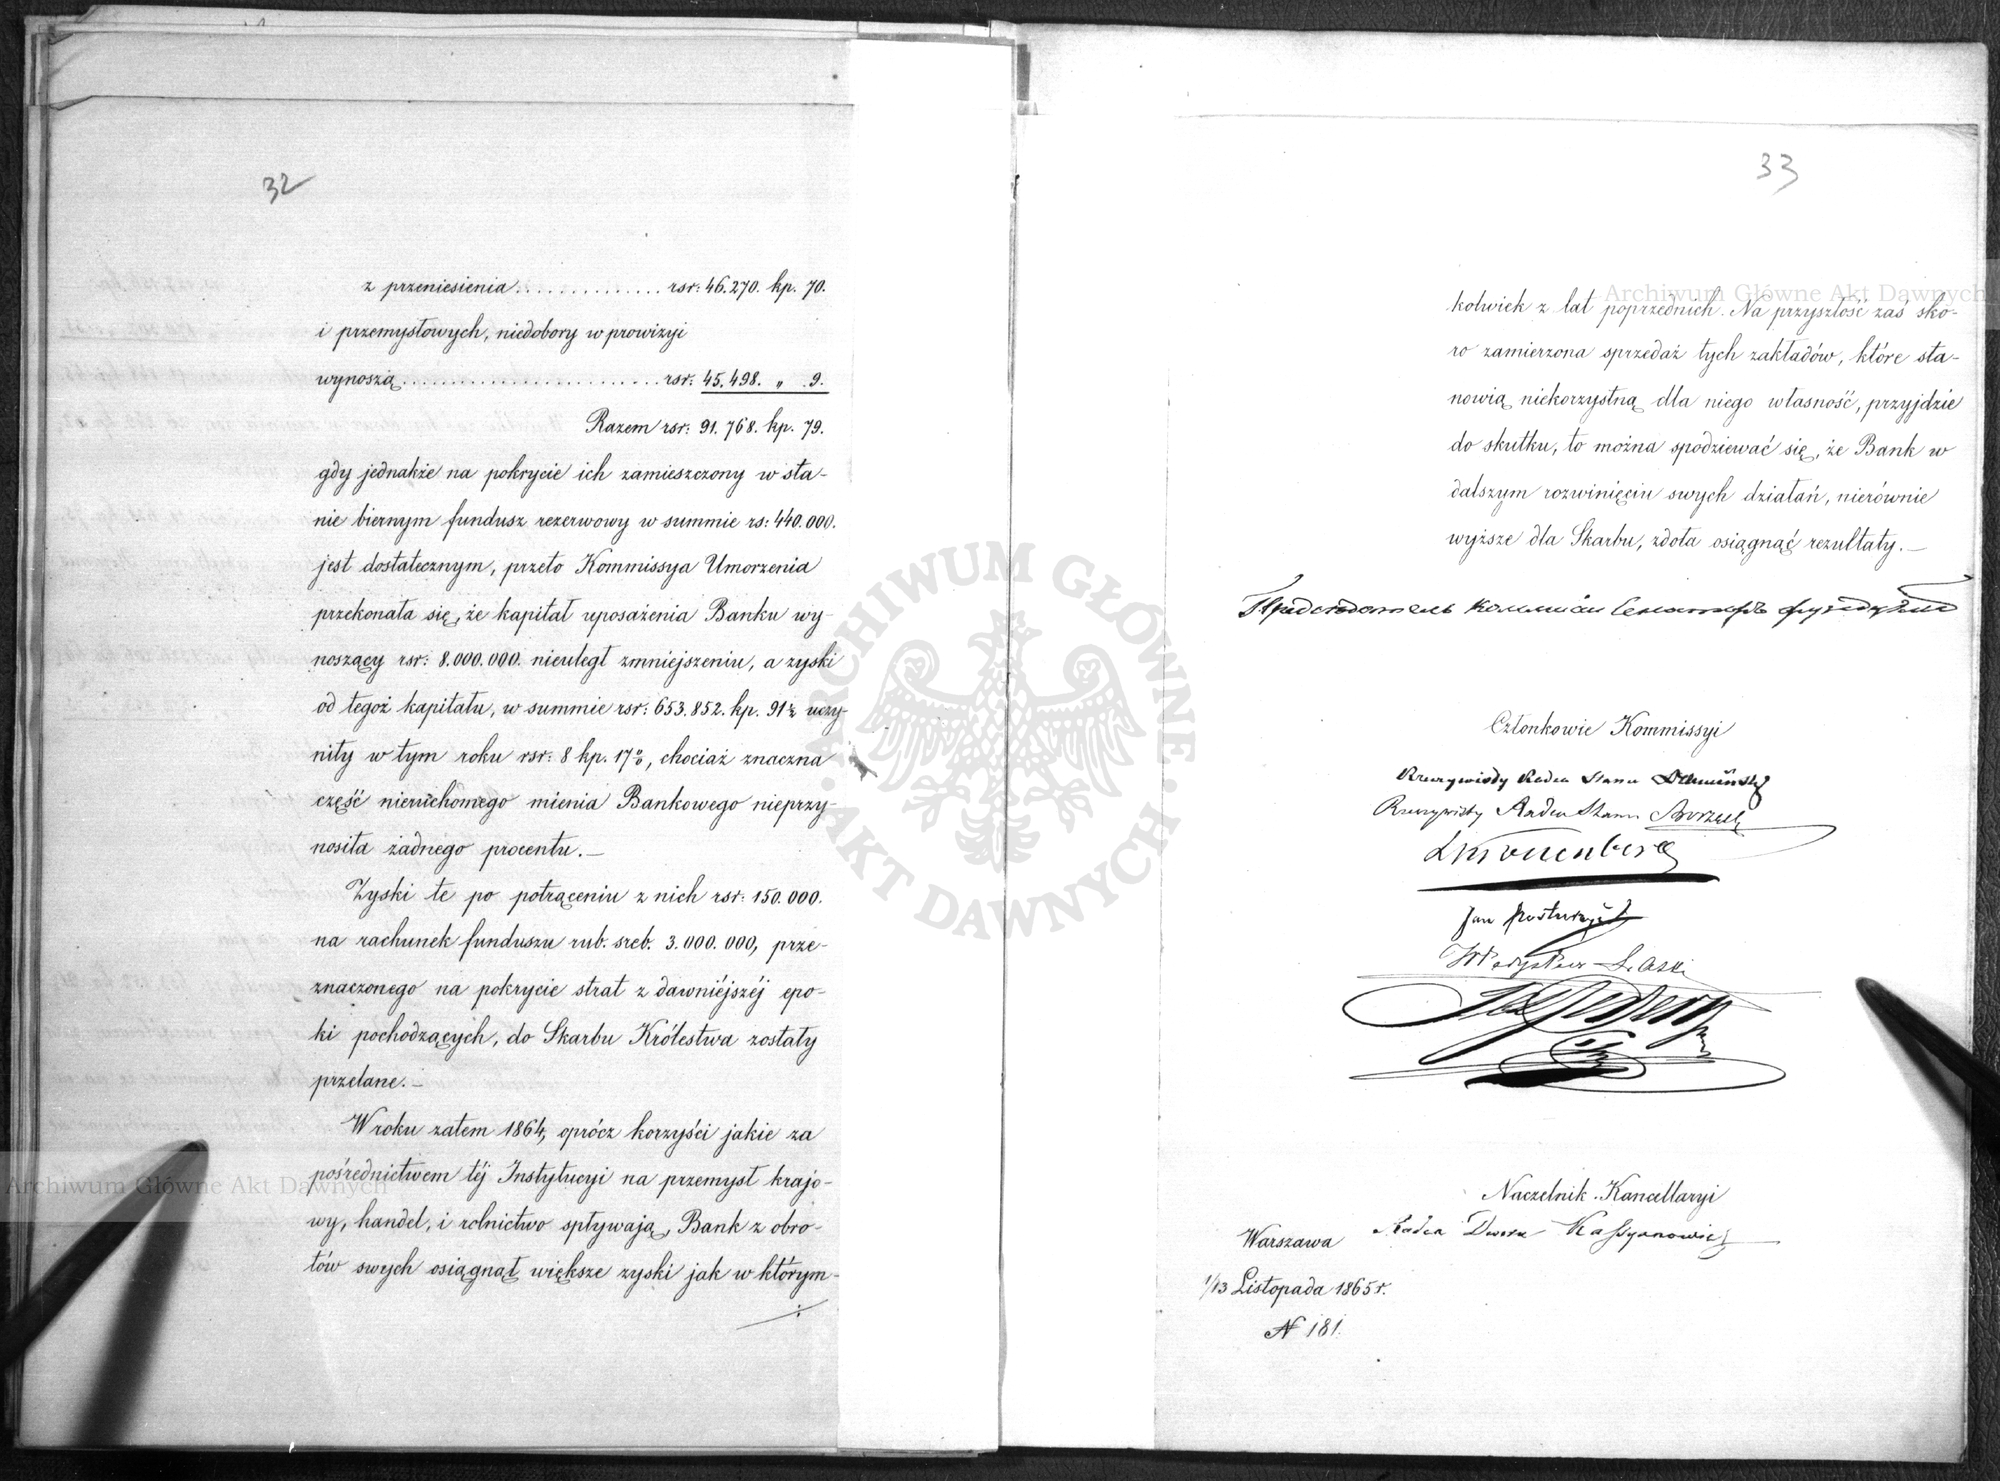 32
z przeniesienia ............. rsr: 46.270. kp. 70.
i przemysłowych, niedobory w prowizyi
wynoszą .......................... rsr: 45.498. „ 9.
Razem rsr: 91.768. kp. 79.
gdy jednakże na pokrycie ich zamieszczony w sta-
nie biernym fundusz rezerwowy w summie rs: 440.000.
jest dostatecznym, przeto Kommissya Umorzenia
przekonała się, że kapitał uposażenia Banku wy-
noszący rsr: 8.000.000. nieuległ zmniejszeniu, a zyski
od tegoż kapitału, w summie rsr: 653.852. kp. 91½ uczy-
niły w tym roku rsr: 8 kp. 17%, chociaż znaczna
część nieruchomego mienia Bankowego nieprzy-
nosiła żadnego procentu. —
Zyski te po potrąceniu z nich rsr: 150.000.
na rachunek funduszu rub. sreb. 3.000.000, prze-
znaczonego na pokrycie strat z dawniéjszéj epo-
ki pochodzących, do Skarbu Królestwa zostały
przelane. —
W roku zatem 1864, oprócz korzyści jakie za
pośrednictwem téj Instytucyi na przemysł krajo-
wy, handel, i rolnictwo spływają, Bank z obro-
tów swych osiągnął większe zyski jak w którym-
33
kolwiek z lat poprzednich. Na przyszłość zaś sko-
ro zamierzona sprzedaż tych zakładów, które sta-
nowią niekorzystną dla niego własność, przyjdzie
do skutku, to można spodziewać się, że Bank w
dalszym rozwinięciu swych działań, nierównie
wyższe dla Skarbu, zdoła osiągnąć rezultaty. —
Предсѣдатель Коммисіи Сенаторъ
Członkowie Kommissyi
Rzeczywisty Radca Stanu
Rzeczywisty Radca Stanu
LKronenberg
Jan
Władysław Laski
Naczelnik Kancellaryi
Radca Dworu Kassyanowicz
Warszawa
1/13 Listopada 1865 r.
N 181.
Archiwum Główne Akt Dawnych
Archiwum Główne Akt Dawnych
ARCHIWUM GŁÓWNE
AKT DAWNYCH